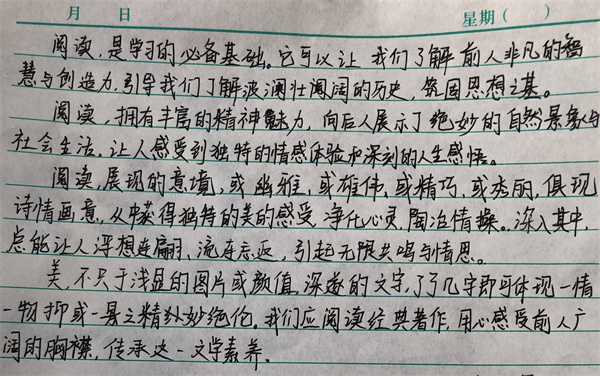 月 日 星期( )
阅读,是学习的必备基础。它可以让我们了解前人非凡的智
慧与创造力,引导我们了解波澜壮阔的历史,筑固思想之基。
阅读,拥有丰富的精神魅力,向后人展示了绝妙的自然景象与
社会生活,让人感受到独特的情感体验和深刻的人生感悟。
阅读,展现的意境,或幽雅,或雄伟,或精巧,或秀丽,俱现
诗情画意,从中获得独特的美的感受,净化心灵,陶冶情操。深入其中,
总能让人浮想连翩、流连忘返,引起无限共鸣与情思。
美,不只于浅显的图片或颜值,深邃的文字,了了几字即可体现一情
一物抑或一景之精致妙绝伦。我们应阅读经典著作,用心感受前人广
阔的胸襟,传承这一文学素养。